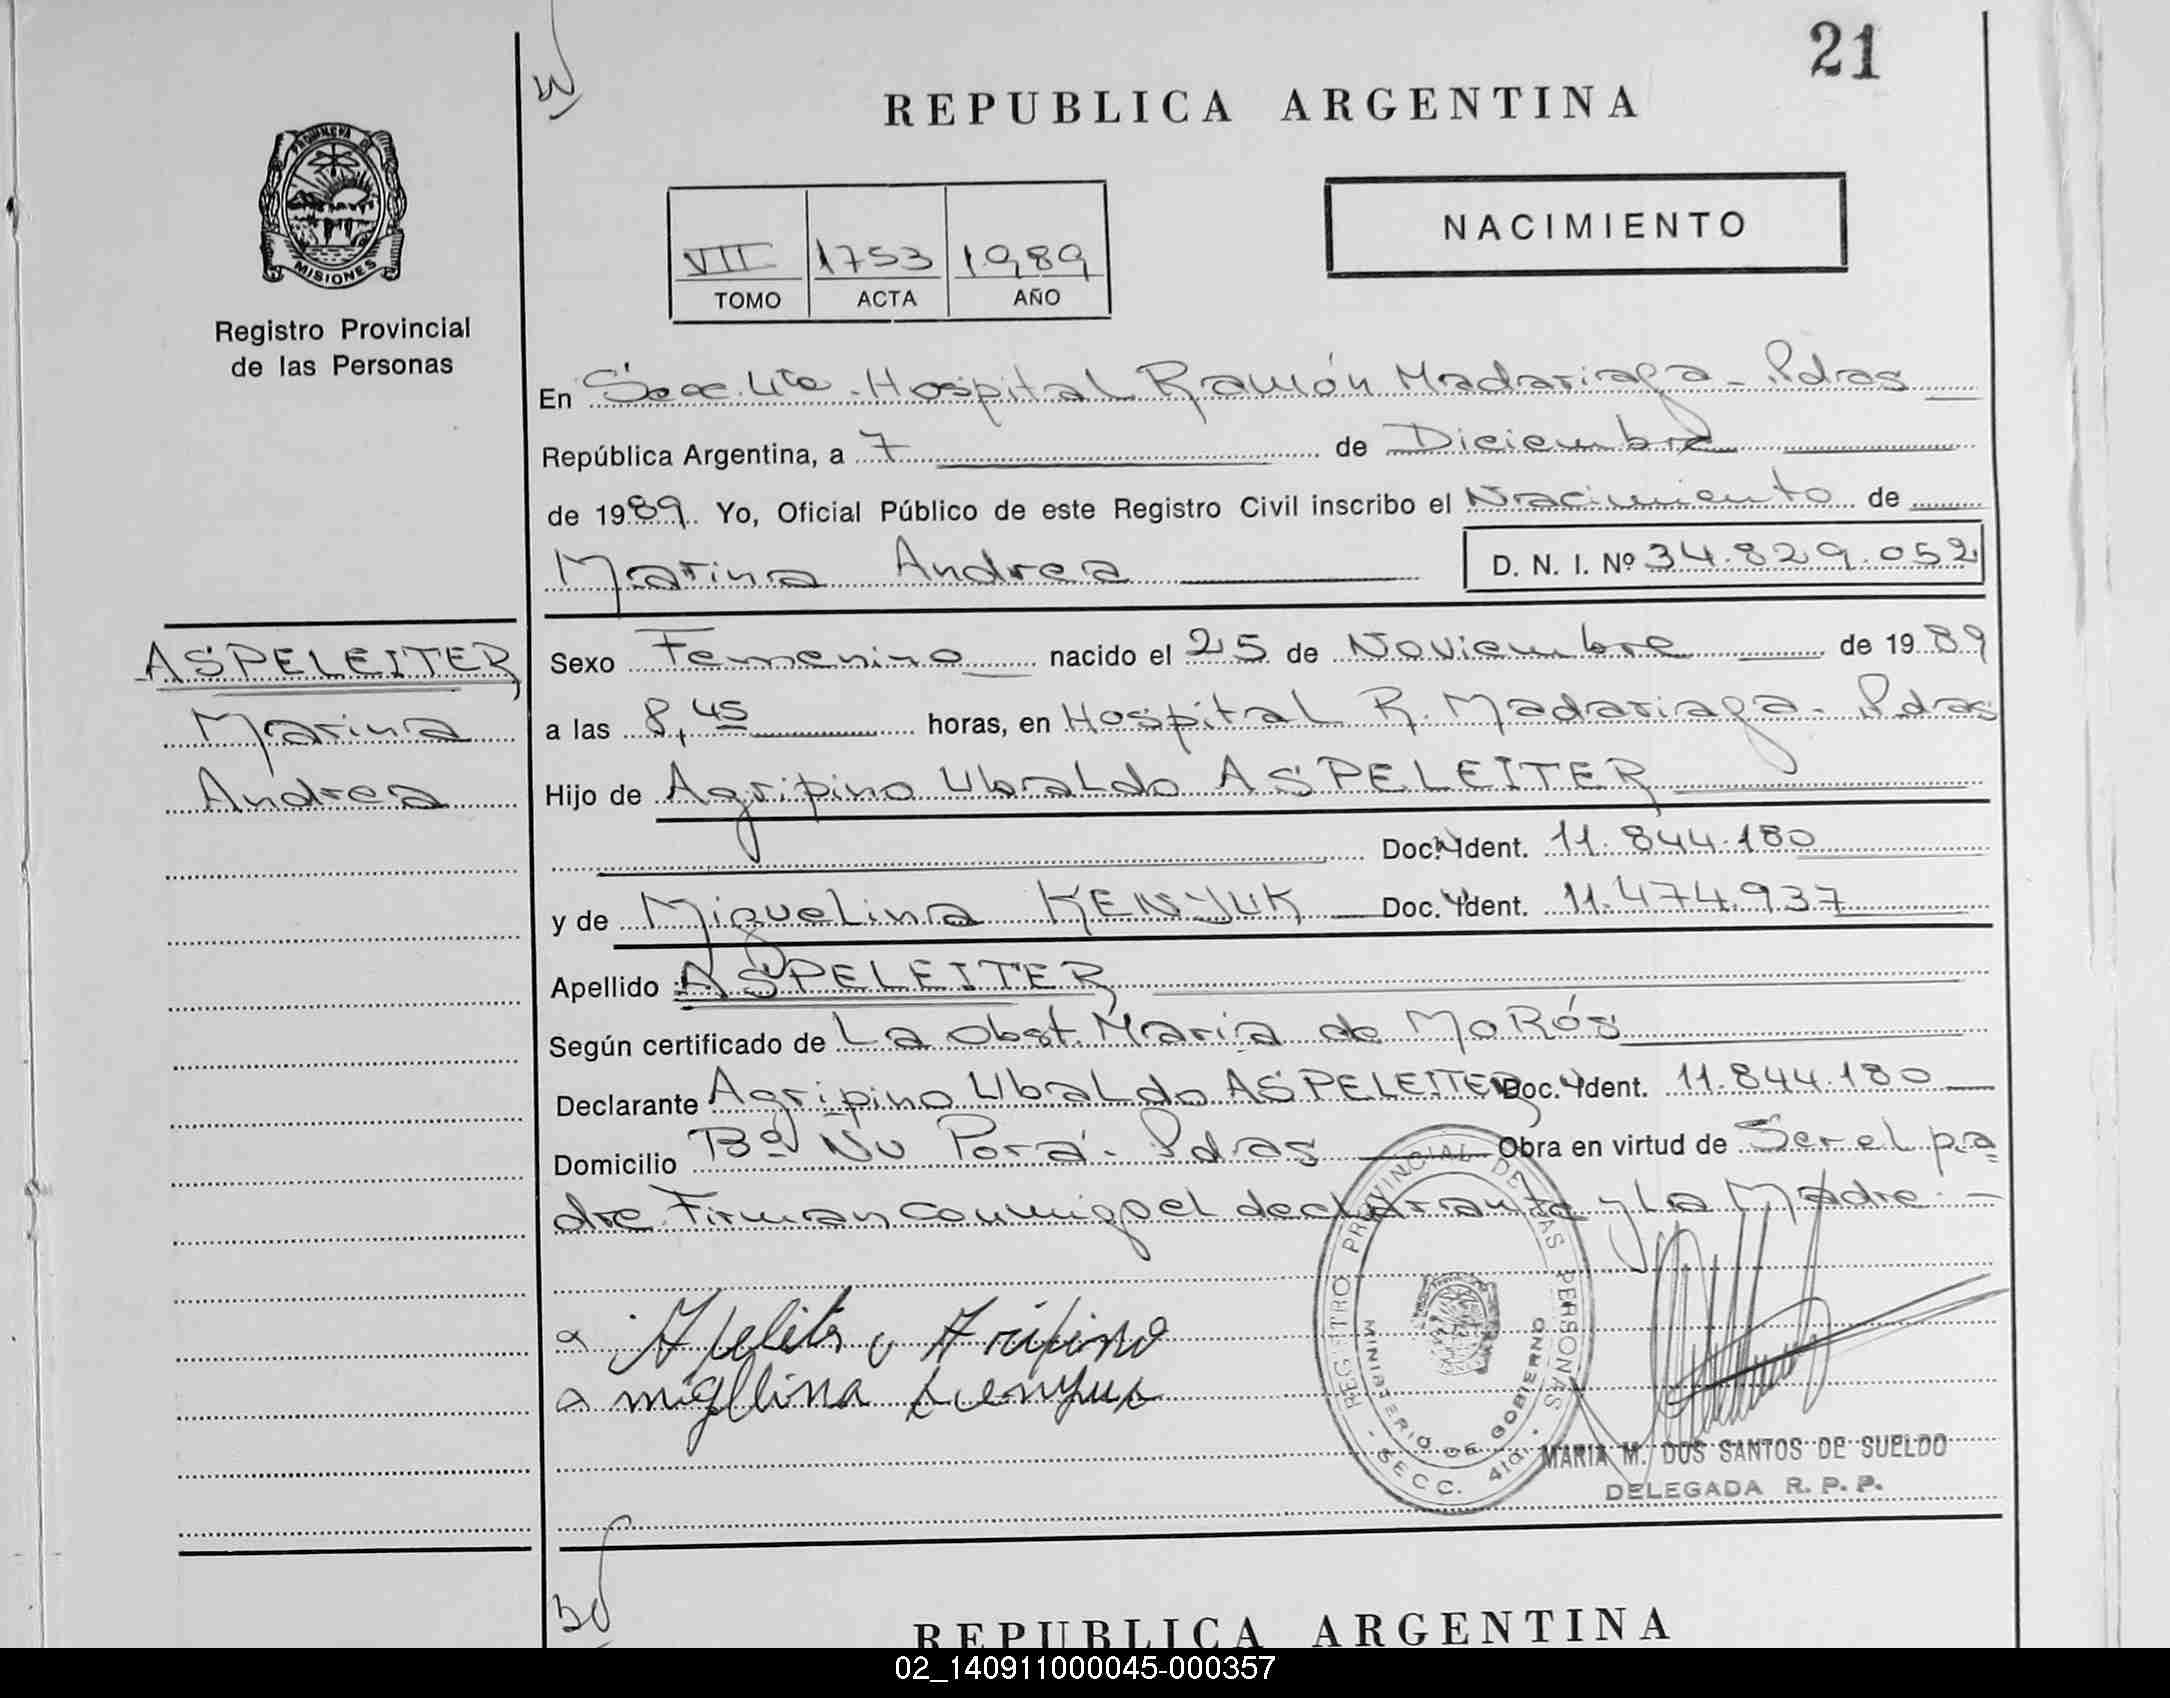 21
REPUBLICA ARGENTINA
PROVINCIA DE
MISIONES
Registro Provincial
de las Personas
NACIMIENTO
VII 1753 1989
TOMO ACTA AÑO
En Secc. 4ta. Hospital Ramón Madariaga - Pdas
República Argentina, a 7 de Diciembre
de 1989. Yo, Oficial Público de este Registro Civil inscribo el Nacimiento de
Marina Andrea D. N. I. Nº 34.829.052
ASPELEITER,
Marina
Andrea
Sexo Femenino nacido el 25 de Noviembre de 1989
a las 8,45 horas, en Hospital R. Madariaga - Pdas
Hijo de Agripino Ubaldo ASPELEITER
Doc. Ident. 11.844.180
y de Miguelina KENYUK Doc. Ident. 11.474.937
Apellido ASPELEITER
Según certificado de La Obst. Maria de MoRós
Declarante Agripino Ubaldo ASPELEITER Doc. Ident. 11.844.180
Domicilio Bº Ñu Porá - Pdas Obra en virtud de Ser el pa
dre. Firman conmigo el declarante y La Madre. -
REGISTRO PROVINCIAL DE LAS PERSONAS
MINISTERIO DE GOBIERNO
- SECC. 4ta. -
MARIA M. DOS SANTOS DE SUELDO
DELEGADA R. P. P.
REPUBLICA ARGENTINA
02_140911000045-000357